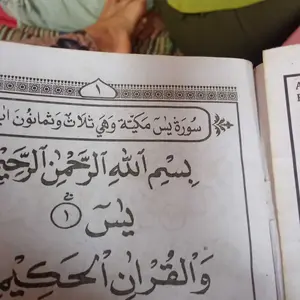 ١
سورة يس مكية وهي ثلاث وثمانون
بِسْمِ اللهِ الرَّحْمٰنِ الرَّحِيْمِ
يٰسٓ ١
وَالْقُرْاٰنِ الْحَكِيْمِ